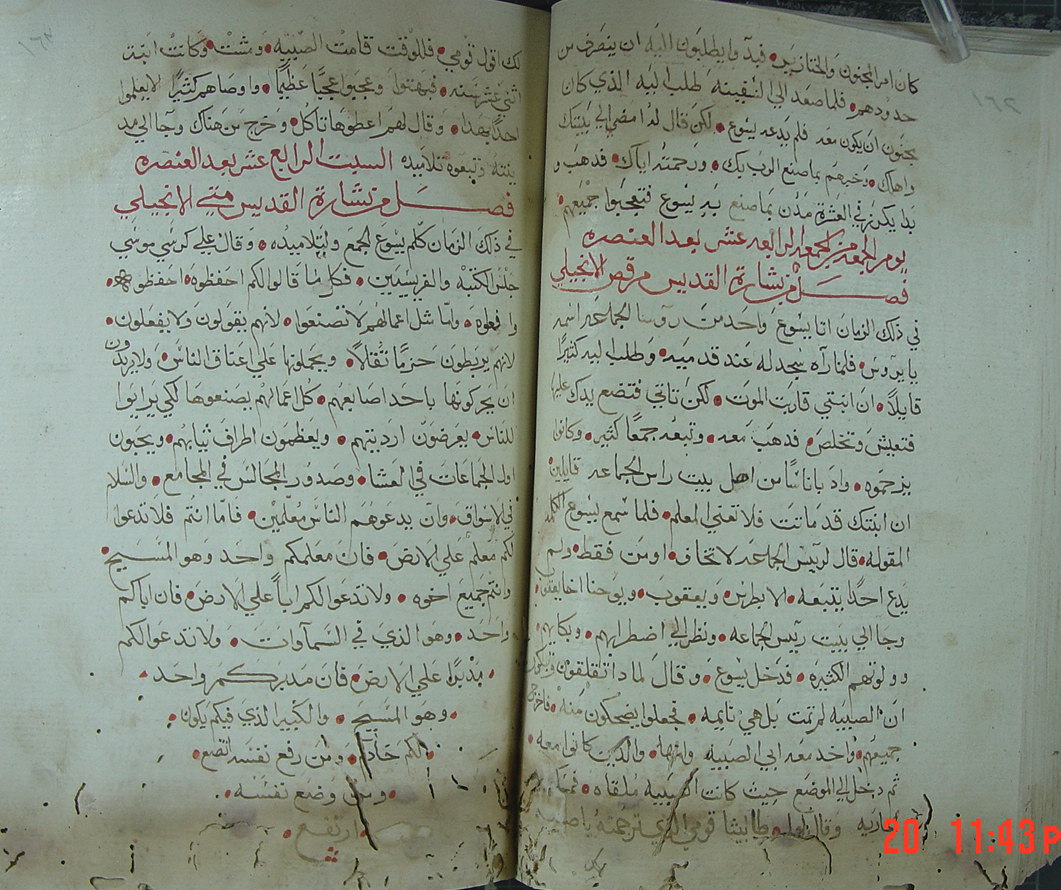 ١٦٢
كان امر المجنون والخنازير فبدآوا يطلبون اليه ان ينصرف من
حدودهم فلما صعد الي السفينه طلب ليه الذي كان
مجنون ان يكون معه فلم يدعه يسوع لكن قال له امضي الي بيتك
واهلك وخبرهم بما صنع الرب بك ورحمته اياك فذهب و
بدا يكرز في العشرة مدن بما صنع به يسوع فتعجبوا جميعهم
يوم الجمعه من الجمعه الرابعه عشر بعد العنصره
فصل من بشارة القديس مرقص الانجيلي
في ذلك الزمان اتا يسوع واحد من روسا الجماعه اسمه
يايروس فلما رآه سجد له عند قدميه وطلب اليه كثيرًا
قايلاً ان ابنتي قاربت الموت لكن تاتي فتضع يدك عليها
فتعيش وتخلص فذهب معه وتبعه جمعًا كثير وكانوا
يزحموه واذ باناسًا من اهل بيت راس الجماعه قايلين
ان ابنتك قد ماتت فلا تعني المعلم فلما سمع يسوع الكلمه
المقوله قال لرييس الجماعه لا تخاف اومن فقط ولم
يدع احدًا يتبعه الا بطرس ويعقوب ويوحنا اخا يعقوب
وجا الي بيت رييس الجماعه ونظر الي اضطرابهم وبكايهم
وولولتهم الكثيره فدخل يسوع وقال لماذا تقلقون وتبكون
ان الصبيه لم تمت بل هي نايمه فجعلوا يضحكون منه فاخرج
جميعهم واخد معه ابي الصبيه وامها والذين كانوا معه
ثم دخل الي الموضع حيث كانت الصبيه ملقاه
وقال لها طاليثا قومي الذي ترجمته يا صبيه
١٦٣
لك اقول قومي فللوقت قامت الصبيه ومشت وكانت ابنة
اثني عشر سنه فبهتوا وعجبوا عجبًا عظيمًا واوصاهم كثيرًا لا يعلموا
احدًا بهذا وقال لهم اعطوها تاكل وخرج من هناك وجا الي مد
ينته وتبعوه تلاميده السبت الرابع عشر بعد العنصره
فصل من بشارة القديس متي الانجيلي
في ذلك الزمان كلم يسوع الجمع ولتلاميده وقال علي كرسي موسي
جلس الكتبه والفريسيين فكل ما قالوا لكم احفظوه احفظوه
وافعلوه وامّا مثل اعمالهم لا تصنعوا لانهم يقولون ولا يفعلون
لانهم يربطون حزمًا ثقالاً ويحملوها علي اعناق الناس ولا يريدون
ان يحركونها باحد اصابعهم كل اعمالهم يصنعوها لكي يرايوا
للناس يعرضون ارديتهم ويعظمون اطراف ثيابهم ويحبون
اول الجماعات في العشا وصدور المجالس في المجامع والسلام
في الاسواق وان يدعوهم الناس معلمين فامّا انتم فلا تدعوا
لكم معلم علي الارض فان معلمكم واحد وهو المسيح
وانتم جميع اخوه ولا تدعوا لكم ابًا علي الارض فان اباكم
واحد وهو الذي في السماوات ولا تدعوا لكم
مدبرًا علي الارض فان مدبركم واحد
وهو المسيح والكبير الذي فيكم يكون
لكم خادم ومن رفع نفسه اتضع
ومن وضع نفسه
ارتفع
20 11:43 P